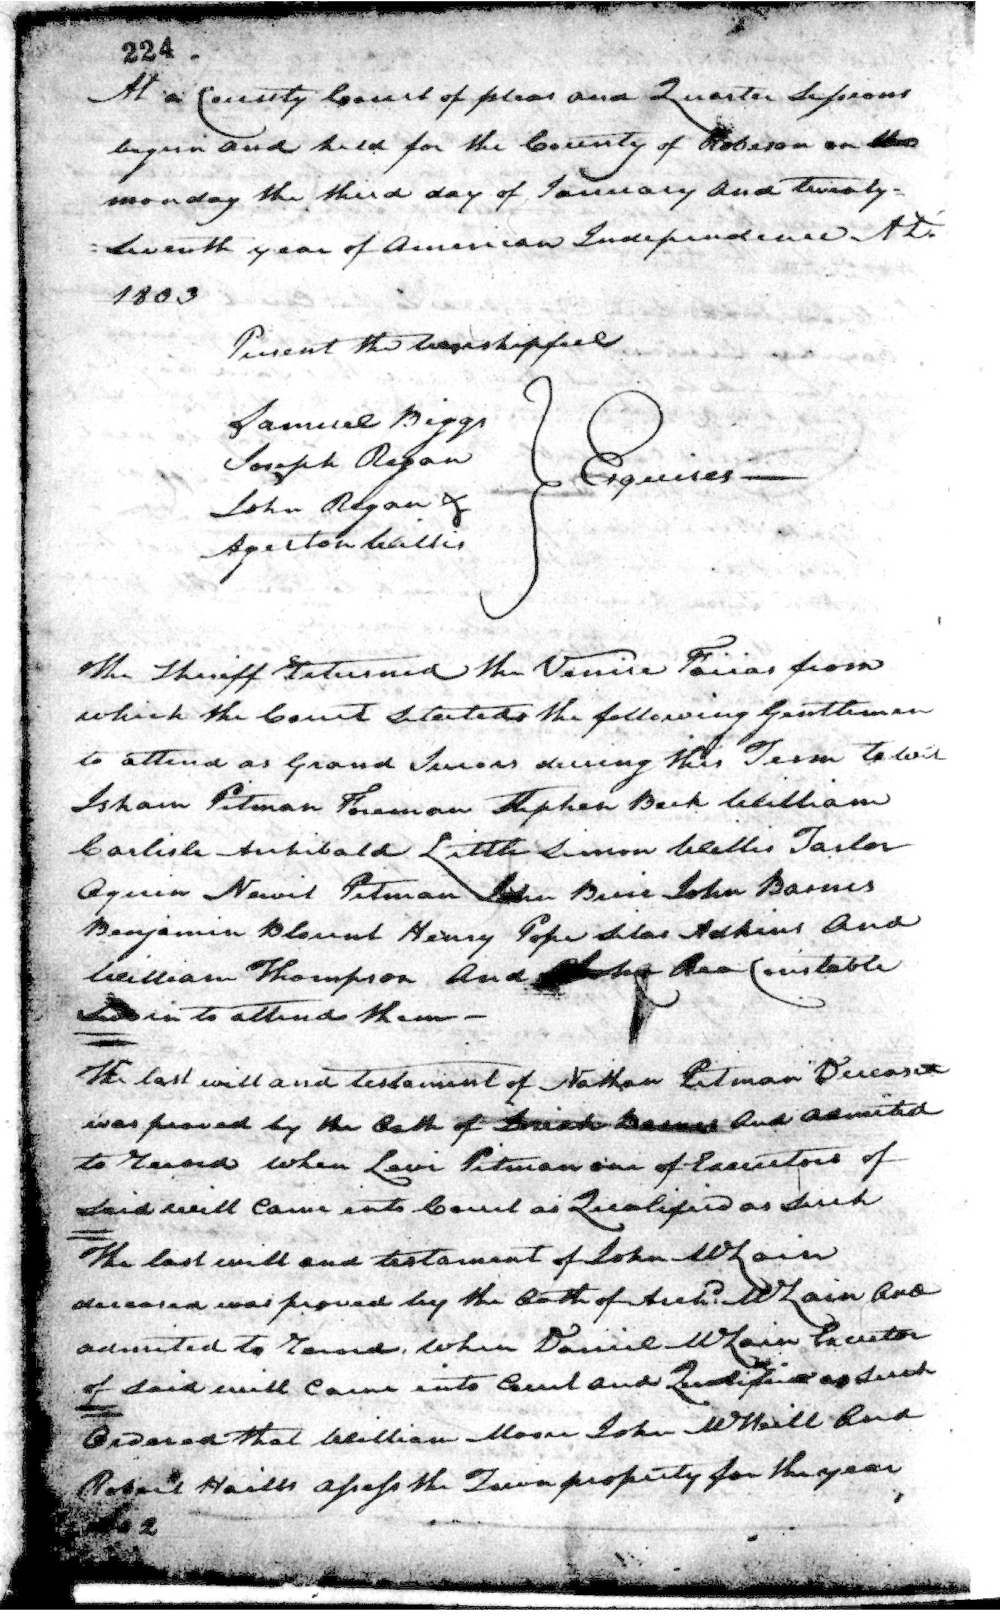 224
At a County Court of pleas and Quarter Sessions
begun and held for the County of Robeson on the
monday the third day of January and twenty-
seventh year of American Independence A D.
1803
Present the worshipfull
Samuel Biggs
Joseph Regan
John Regan &
Agerton Willis
Esquires
The Sheriff returned the Venire Facias from
which the Court selected the following Gentlemen
to attend as Grand Jurors during this Term towit
Isham Pitman Foreman Stephen Beek William
Carlisle Archibald Little Simon Willis Taylor
Newit Pitman John Buie John Barnes
Benjamin Blount Henry Pope Silas Adkins And
William Thompson And John Rea Constable
Sworn to attend them -
The last will and testament of Nathan Pitman Deceased
was proved by the Oath of Barnes And admited
to record when Levi Pitman one of Executors of
said will came into Court as Qualified as such
The last will and testament of John McLain
deceased was proved by the Oath of Archd. McLain And
admited to record. when Daniel McLain Executor
of said will came into Court and Qualified as such
Ordered that William Moore John McNeill And
Robert Hails assess the Town property for the year
1802